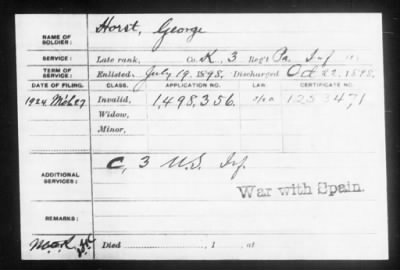 NAME OF SOLDIER: Horst, George
SERVICE: Late rank, Co. K, 3 Reg't Pa. Inf
TERM OF SERVICE: Enlisted July 19, 1898. Discharged Oct 22, 1898.
DATE OF FILING. CLASS. APPLICATION NO. LAW. CERTIFICATE NO.
1924 Mch 27 Invalid, 1,498,356. 1253471
Widow,
Minor,
ADDITIONAL SERVICES: C, 3 U.S. Inf.
War with Spain.
REMARKS:
Died , 1 , at